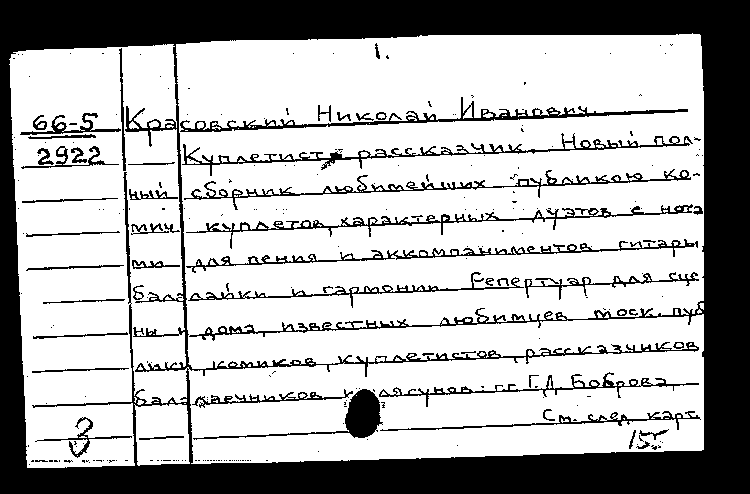 1.
66-5 Красовский Николай Иванович.
2922 Куплетист рассказчик. Новый пол-
ный сборник любимейших публикою ко-
мич. куплетов, характерных дуэтов с нота
ми для пения и аккомпаниментов гитары,
балалайки и гармонии. Репертуар для сце-
ны и дома, известных любимцев моск. пуб
лики, комиков, куплетистов, рассказчиков,
балалаечников и плясунов: г.г. Г.Д. Боброва,
См. след карт.
3 155